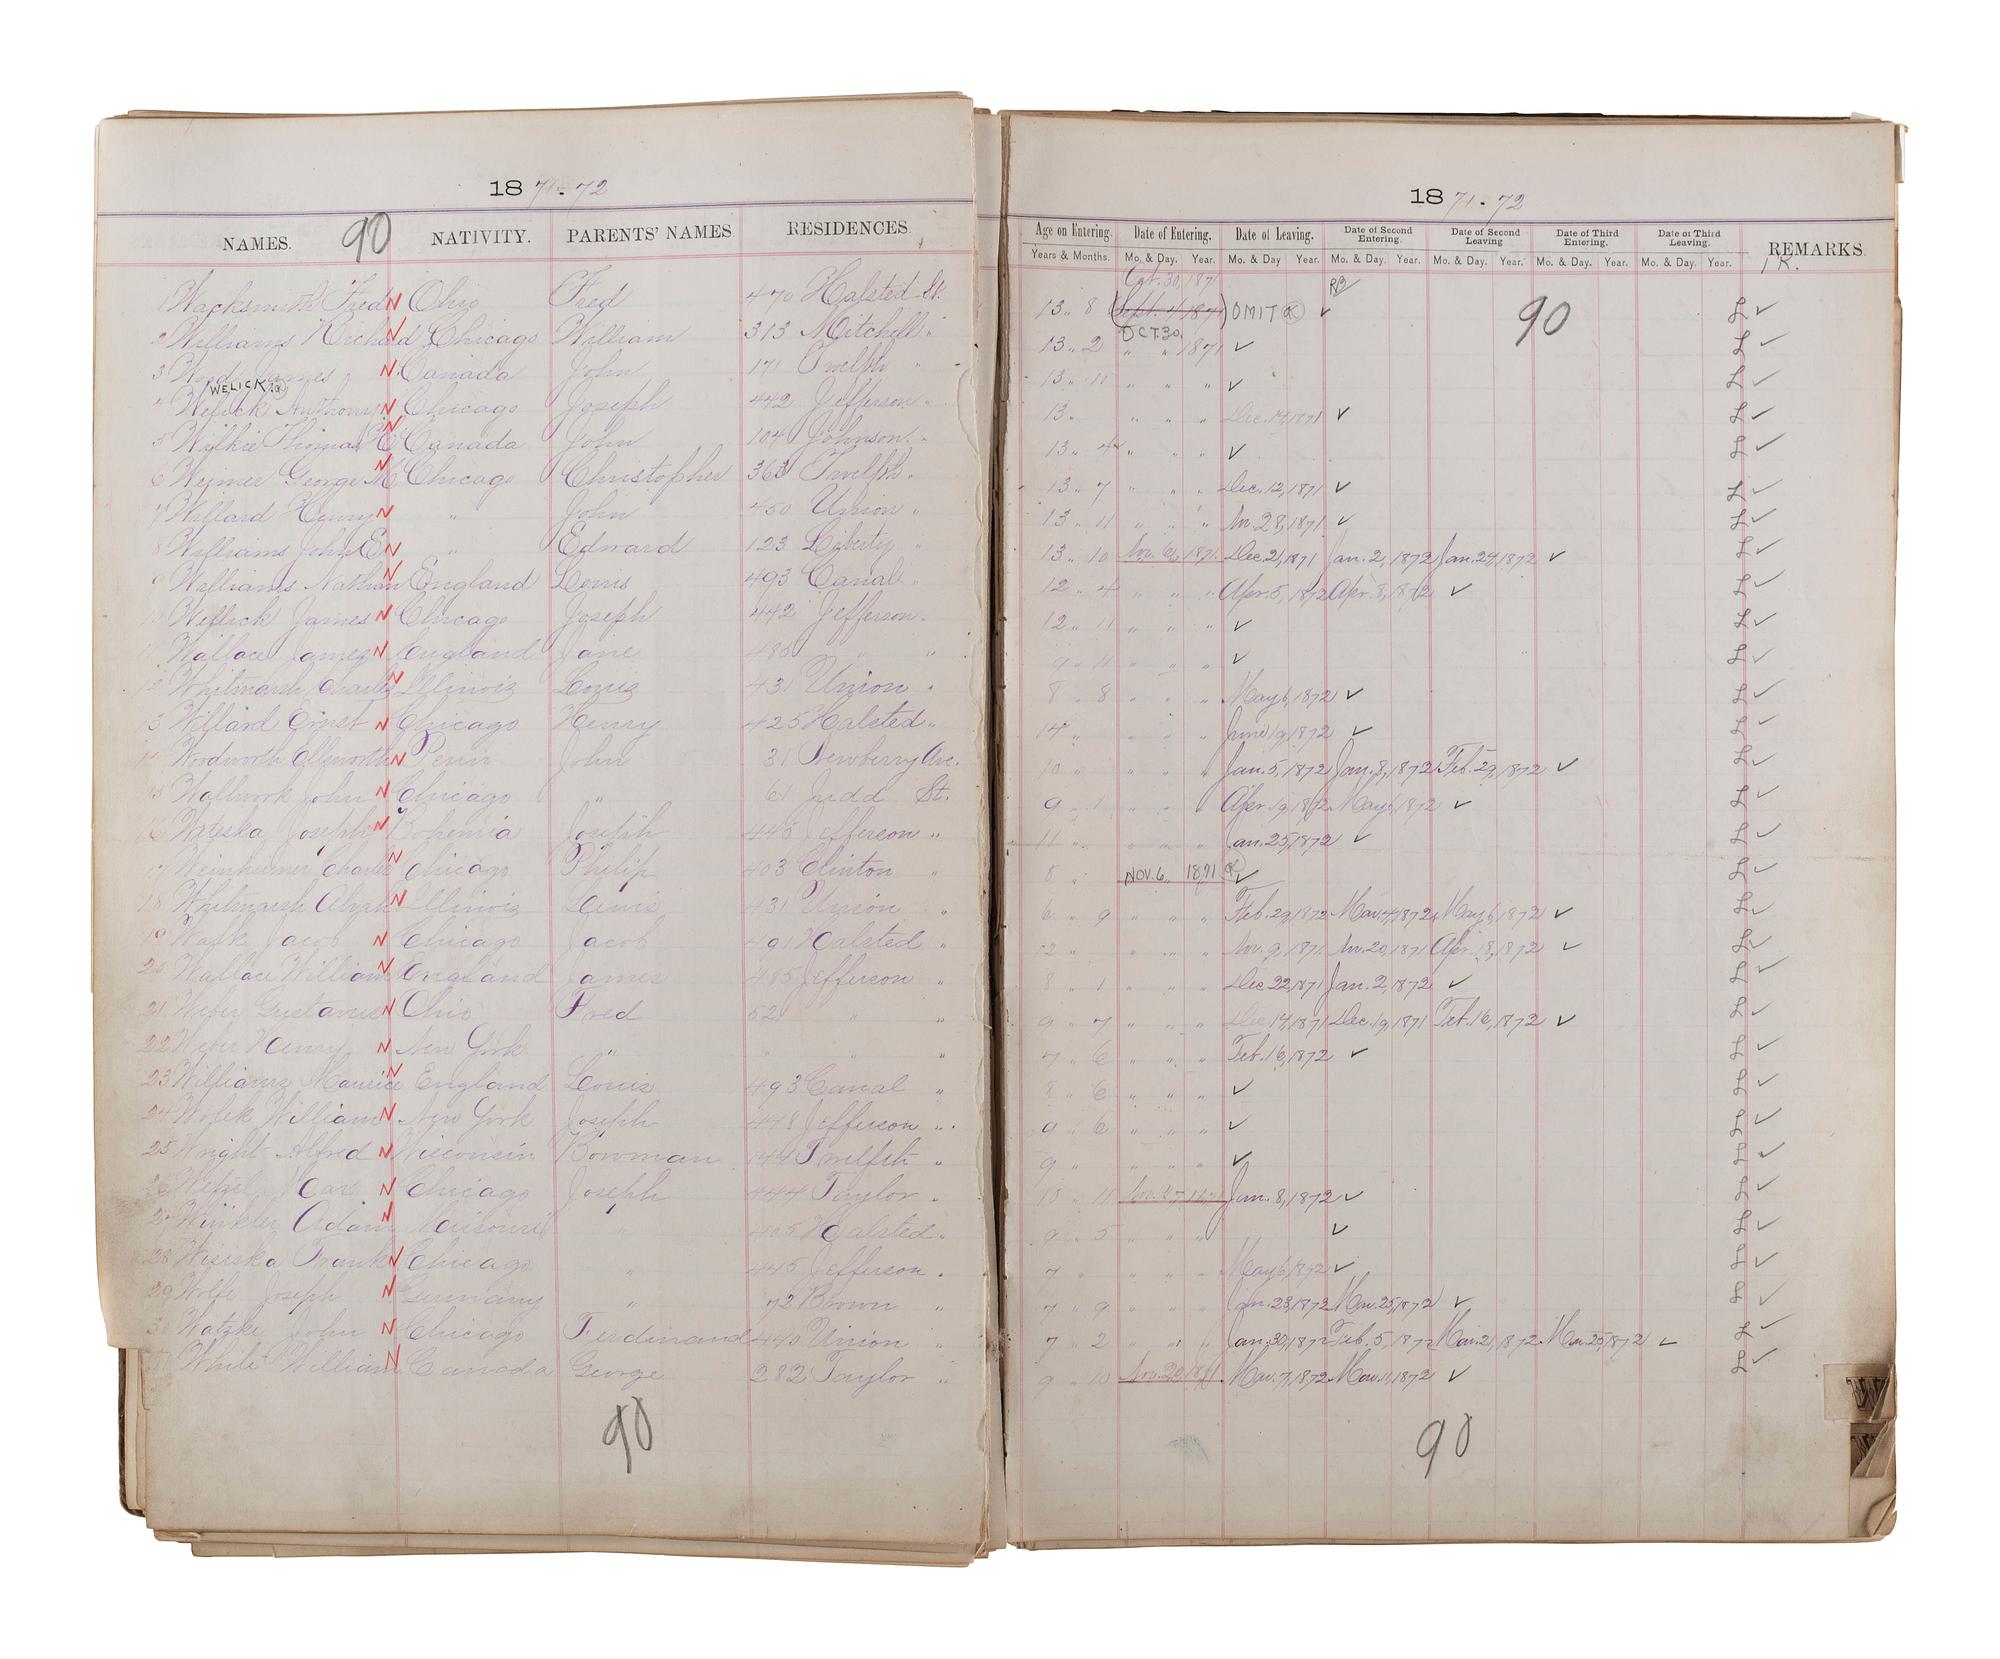 18 71-72
NAMES. 90 NATIVITY. PARENTS' NAMES. RESIDENCES.
1 Wacksmuth Fred N Ohio Fred 470 Halsted St.
2 Williams Richard N Chicago William 313 Mitchell "
3 Wood James N Canada John 171 Twelfth "
WELICK
4 Welick Anthony N Chicago Joseph 442 Jefferson "
5 Wilkie Thomas H N Canada John 104 Johnson "
6 Weimer George M N Chicago Christopher 363 Twelfth "
7 Willard Henry N " John 450 Union "
8 Williams John E N " Edward 123 Liberty "
9 Williams Nathan N England Louis 493 Canal "
10 Wellick James N Chicago Joseph 442 Jefferson "
11 Wallace James N England Jane 485 " "
12 Whitmarsh Charles N Illinois Louis 431 Union "
13 Willard Ernst N Chicago Henry 425 Halsted "
14 Woodworth Ellsworth N Penn John 31 Newberry Ave.
15 Wallwork John N Chicago " 61 Judd St.
16 Wateska Joseph N Bohemia Joseph 445 Jefferson "
17 Weinheimer Charles N Chicago Philip 403 Clinton "
18 Whitmarsh Alvah N Illinois Lewis 431 Union "
19 Walk Jacob N Chicago Jacob 491 Halsted "
20 Wallace William N England James 485 Jefferson "
21 Weber Gustavus N Ohio Fred 52 " "
22 Weber Henry N New York " " " "
23 Williams Maurice N England Louis 493 Canal "
24 Wolek William N New York Joseph 448 Jefferson "
25 Wright Alfred N Wisconsin Bowman 144 Twelfth "
26 Wetzel Max N Chicago Joseph 444 Taylor "
27 Winkler Adam N Missouri " 405 Halsted "
28 Wisiska Frank N Chicago " 445 Jefferson "
29 Wolfe Joseph N Germany " 72 Brown "
30 Watzke John N Chicago Ferdinand 440 Union "
31 White William N Canada George 282 Taylor "
90
18 71-72
Age on Entering. Date of Entering. Date of Leaving. Date of Second Entering. Date of Second Leaving Date of Third Entering. Date of Third Leaving. REMARKS.
Years & Months. Mo. & Day. Year. Mo. & Day Year. Mo. & Day. Year. Mo. & Day. Year. Mo. & Day. Year. Mo. & Day. Year. 1 K.
Oct. 30, 1871 RB
13 " 8 (Sept. 4, 1871) OMIT ✓ 90 L ✓
OCT 30,
13 " 2 " " 1871 ✓ L ✓
13 " 11 " " " ✓ L ✓
13 " " " " Dec. 14, 1871 ✓ L ✓
13 " 4 " " " ✓ L ✓
13 " 7 " " " Dec. 12, 1871 ✓ L ✓
13 " 11 " " " Nov. 28, 1871 ✓ L ✓
13 " 10 Nov. 6, 1871. Dec. 21, 1871 Jan. 2, 1872 Jan. 24, 1872 ✓ L ✓
12 " 4 " " " Apr. 5, 1872 Apr. 8, 1872 ✓ L ✓
12 " 11 " " " ✓ L ✓
9 " 11 " " " ✓ L ✓
8 " 8 " " " May 6, 1872 ✓ L ✓
14 " " " " June 19, 1872 ✓ L ✓
10 " " " " Jan. 5, 1872 Jan. 8, 1872 Feb. 29, 1872 ✓ L ✓
9 " 1 " " " Apr. 19, 1872 May 6, 1872 ✓ L ✓
11 " " " " Jan. 25, 1872 ✓ L ✓
8 " NOV. 6 1871 ✓ L ✓
6 " 9 " " " Feb. 29, 1872 Mar. 4, 1872 May 6, 1872 ✓ L ✓
12 " " " " Nov. 9, 1871 Nov. 20, 1871 Apr. 18, 1872 ✓ L ✓
8 " 1 " " " Dec 22, 1871 Jan. 2, 1872 ✓ L ✓
9 " 7 " " " Dec. 14, 1871 Dec. 19, 1871 Feb. 16, 1872 ✓ L ✓
7 " 6 " " " Feb. 16, 1872 ✓ L ✓
8 " 6 " " " ✓ L ✓
9 " 6 " " " ✓ L ✓
9 " " " " ✓ L ✓
10 " 11 Nov. 27, 1871 Jan. 8, 1872 ✓ L ✓
9 " 5 " " " ✓ L ✓
7 " " " " May 6, 1872 ✓ L ✓
7 " 9 " " " Jan. 23, 1872 Mar. 25, 1872 ✓ L ✓
7 " 2 " " " Jan. 30, 1872 Feb. 5, 1872 Mar. 21, 1872 Mar. 25, 1872 ✓ L ✓
9 " 10 Nov. 20, 1871. Mar. 7, 1872 Mar. 11, 1872 ✓ L ✓
90
W
W